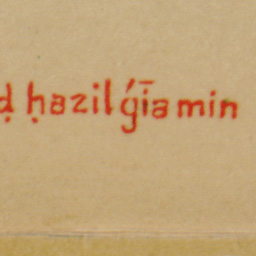 ḍ ḥazilǵīamin